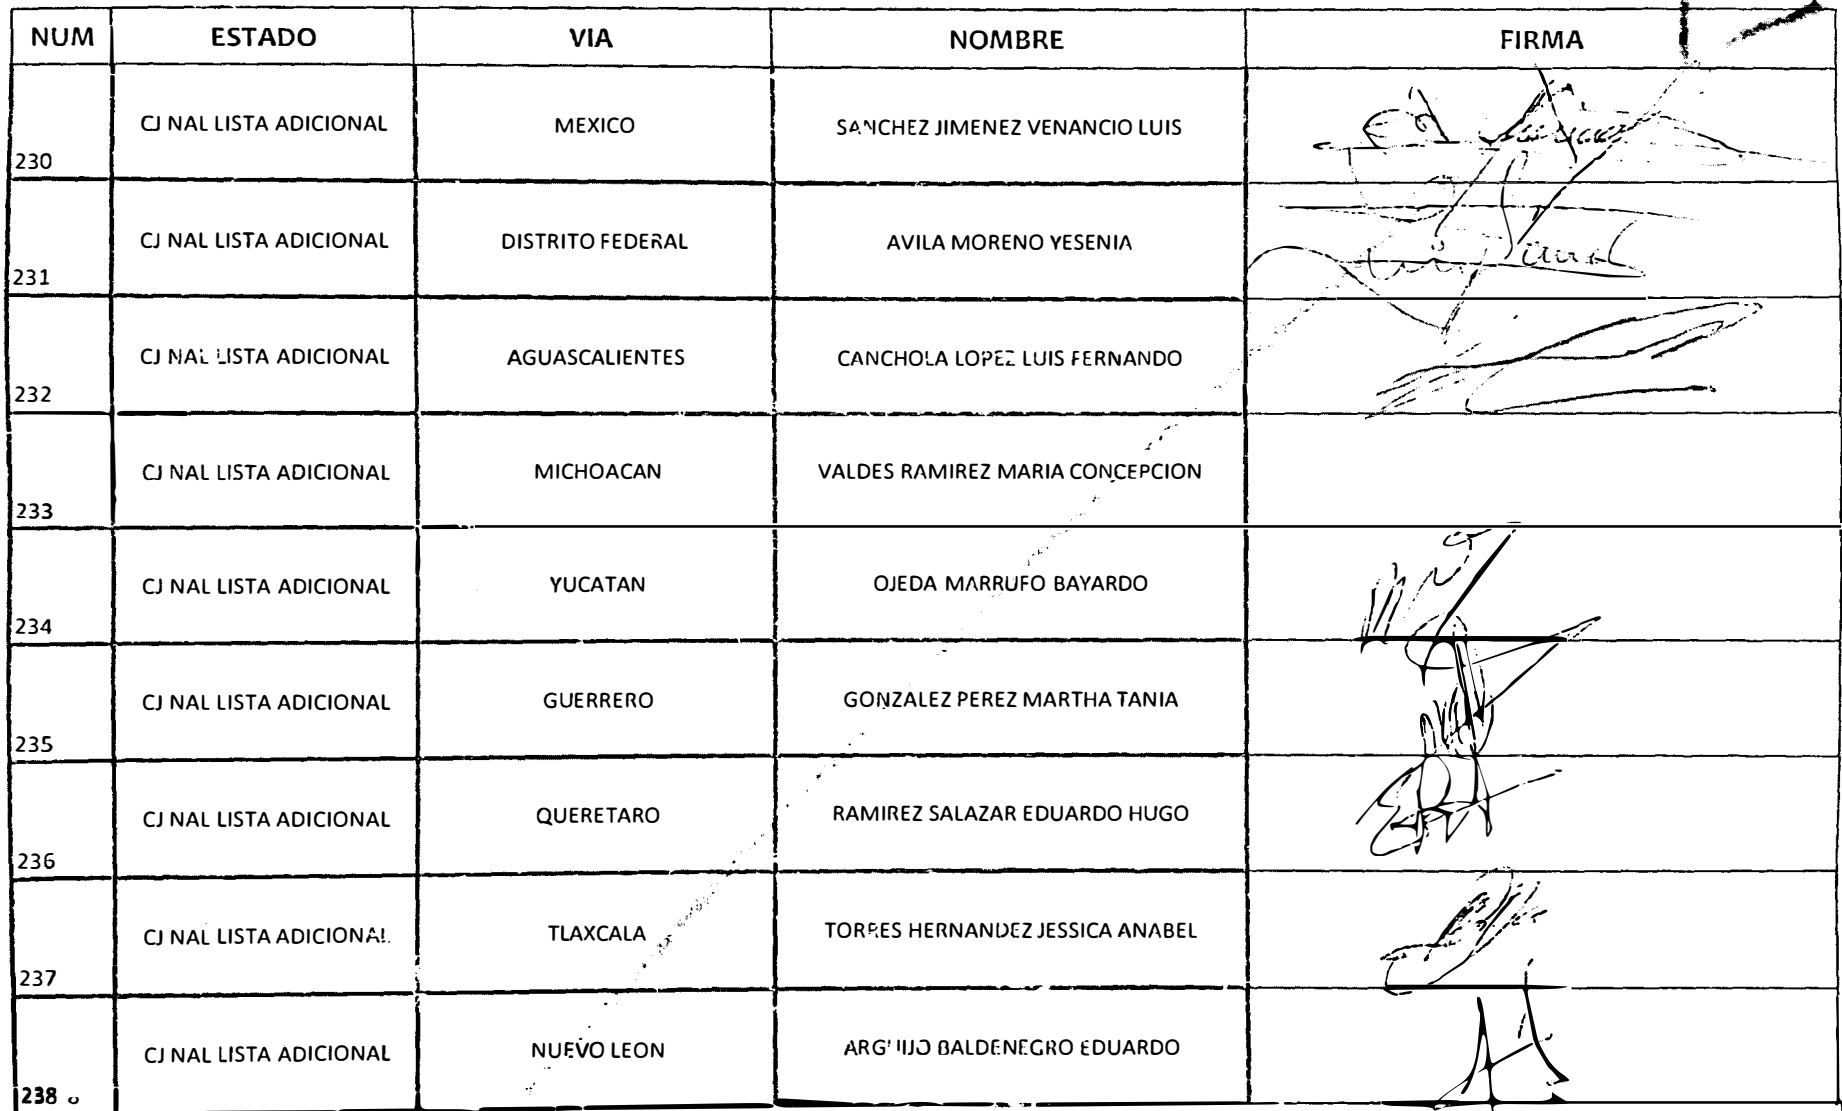 NUM ESTADO VIA NOMBRE FIRMA
230 CJ NAL LISTA ADICIONAL MEXICO SANCHEZ JIMENEZ VENANCIO LUIS
231 CJ NAL LISTA ADICIONAL DISTRITO FEDERAL AVILA MORENO YESENIA
232 CJ NAL LISTA ADICIONAL AGUASCALIENTES CANCHOLA LOPEZ LUIS FERNANDO
233 CJ NAL LISTA ADICIONAL MICHOACAN VALDES RAMIREZ MARIA CONCEPCION
234 CJ NAL LISTA ADICIONAL YUCATAN OJEDA MARRUFO BAYARDO
235 CJ NAL LISTA ADICIONAL GUERRERO GONZALEZ PEREZ MARTHA TANIA
236 CJ NAL LISTA ADICIONAL QUERETARO RAMIREZ SALAZAR EDUARDO HUGO
237 CJ NAL LISTA ADICIONAL TLAXCALA TORRES HERNANDEZ JESSICA ANABEL
238 CJ NAL LISTA ADICIONAL NUEVO LEON ARGUIJO BALDENEGRO EDUARDO